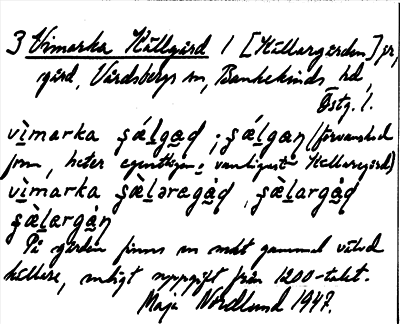 3 Vimarka Källgård / [Källaregården] pr,
gård, Vårdsbergs sn, Bankekinds hd,
Östg. l.
vìmarka ʂálgaḍ ; ʂálgan (förvanskad
form, heter egentligen: vanligast Källaregård)
vìmarka ʂàləragàḍ , ʂàlargàḍ
ʂàlərgàn
På gården finns en mkt gammal välvd
källare, enligt uppgift från 1200-talet.
Maja Nordlund 1947.